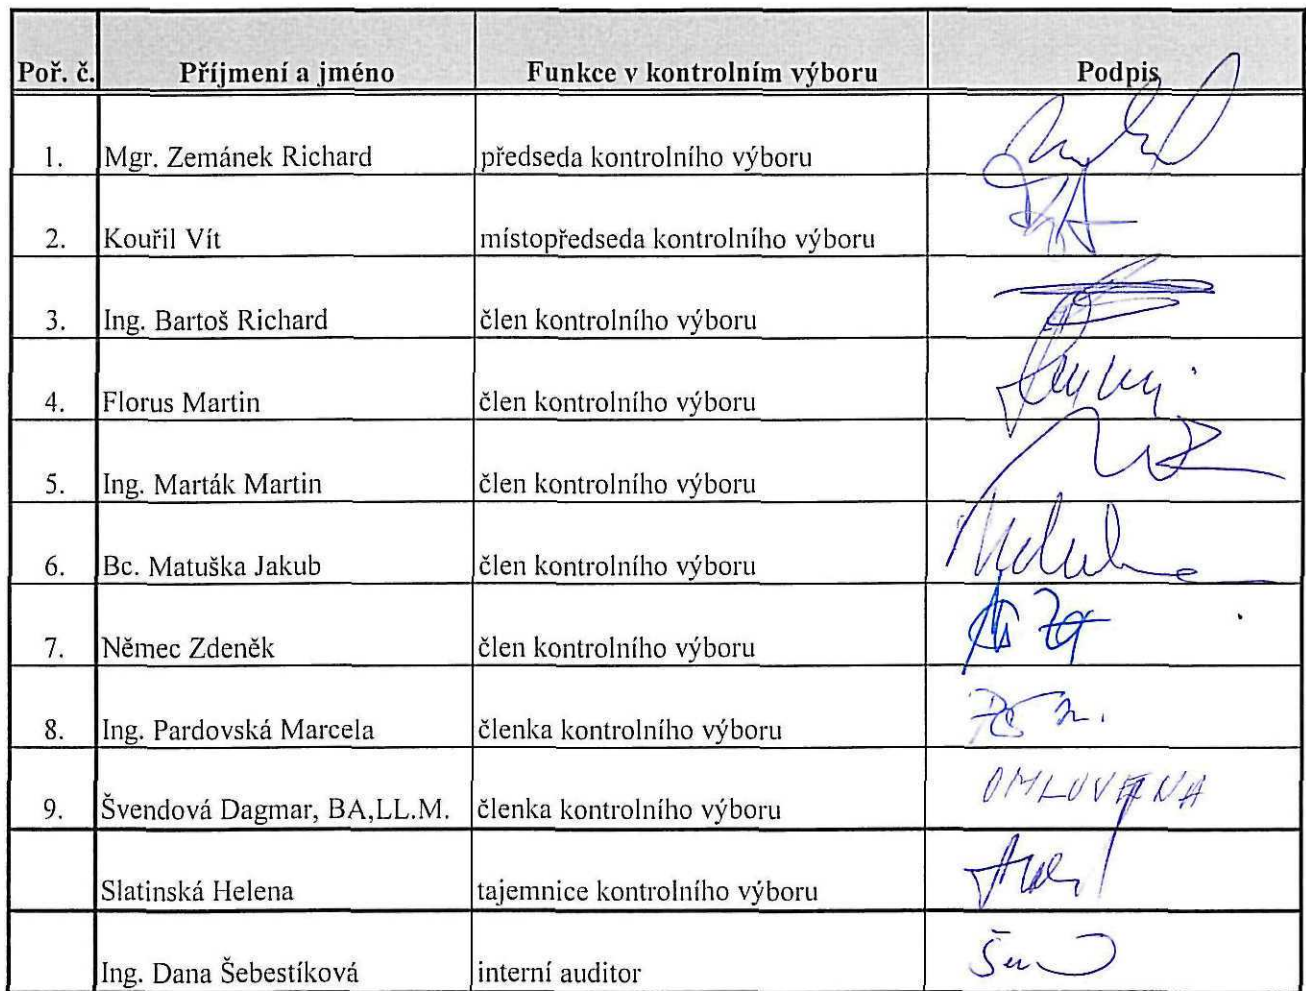 Poř. č. Příjmení a jméno Funkce v kontrolním výboru Podpis
1. Mgr. Zemánek Richard předseda kontrolního výboru
2. Kouřil Vít místopředseda kontrolního výboru
3. Ing. Bartoš Richard člen kontrolního výboru
4. Florus Martin člen kontrolního výboru
5. Ing. Marták Martin člen kontrolního výboru
6. Bc. Matuška Jakub člen kontrolního výboru
7. Němec Zdeněk člen kontrolního výboru
8. Ing. Pardovská Marcela členka kontrolního výboru
9. Švendová Dagmar, BA,LL.M. členka kontrolního výboru OMLUVENA
Slatinská Helena tajemnice kontrolního výboru
Ing. Dana Šebestíková interní auditor